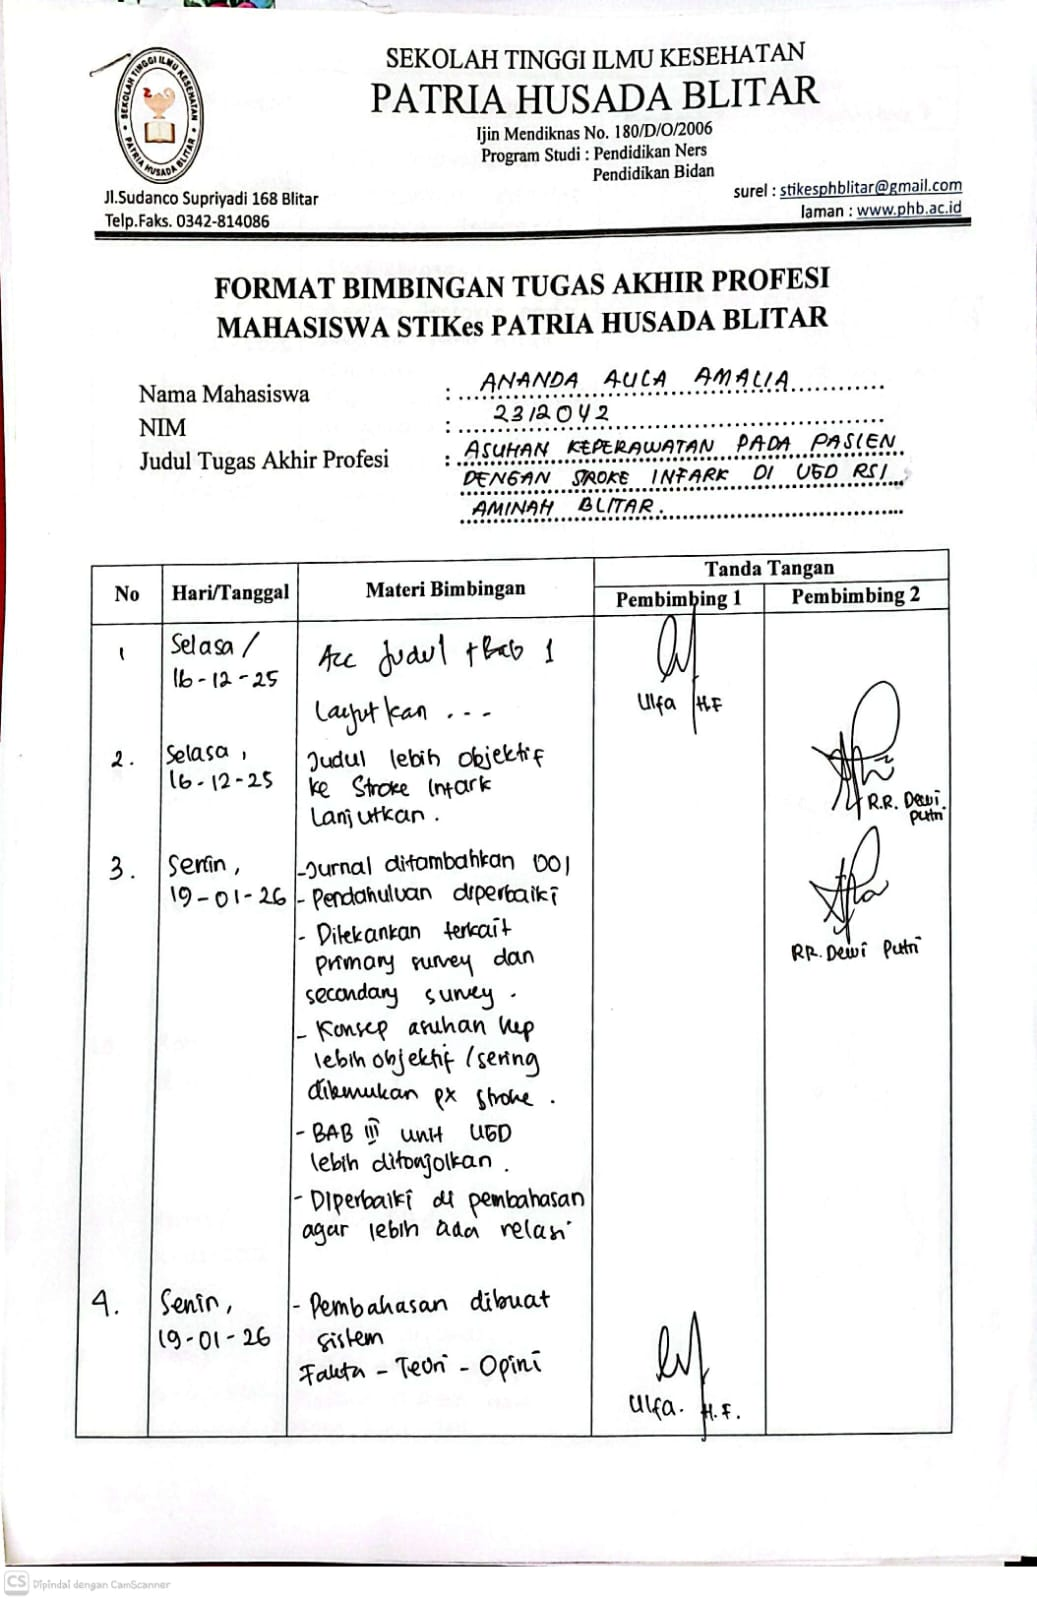 SEKOLAH TINGGI ILMU KESEHATAN
PATRIA HUSADA BLITAR
Ijin Mendiknas No. 180/D/O/2006
Program Studi : Pendidikan Ners
Pendidikan Bidan
SEKOLAH TINGGI ILMU KESEHATAN
PATRIA HUSADA BLITAR
Jl.Sudanco Supriyadi 168 Blitar
Telp.Faks. 0342-814086
surel : stikesphblitar@gmail.com
laman : www.phb.ac.id
FORMAT BIMBINGAN TUGAS AKHIR PROFESI
MAHASISWA STIKes PATRIA HUSADA BLITAR
Nama Mahasiswa : ANANDA AULA AMALIA
NIM : 2312042
Judul Tugas Akhir Profesi : ASUHAN KEPERAWATAN PADA PASIEN
DENGAN STROKE INFARK DI UGD RSI
AMINAH BLITAR.
No Hari/Tanggal Materi Bimbingan Tanda Tangan
Pembimbing 1 Pembimbing 2
1 Selasa / Acc Judul + Bab 1
16-12-25
Lanjutkan ...
Ulfa H.F
2. Selasa, Judul lebih objektif
16-12-25 ke Stroke Infark
Lanjutkan.
R.R. Dewi
Putri
3. Senin, - Jurnal ditambahkan DOI
19-01-26 - Pendahuluan diperbaiki
- Ditekankan terkait
primary survey dan
secondary survey.
RR. Dewi Putri
- Konsep asuhan kep
lebih objektif / sering
ditemukan px stroke.
- BAB III unit UGD
lebih ditonjolkan.
- Diperbaiki di pembahasan
agar lebih ada relasi
4. Senin, - Pembahasan dibuat
19-01-26 sistem
Fakta - Teori - Opini
Ulfa. H.F.
CS Dipindai dengan CamScanner